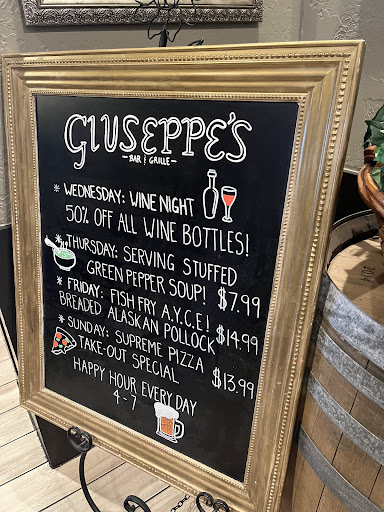 GIUSEPPE'S
- BAR & GRILLE -
* WEDNESDAY: WINE NIGHT
50% OFF ALL WINE BOTTLES!
* THURSDAY: SERVING STUFFED
GREEN PEPPER SOUP! $7.99
* FRIDAY: FISH FRY A.Y.C.E!
BREADED ALASKAN POLLOCK $14.99
* SUNDAY: SUPREME PIZZA
TAKE-OUT SPECIAL $13.99
HAPPY HOUR EVERY DAY
4-7